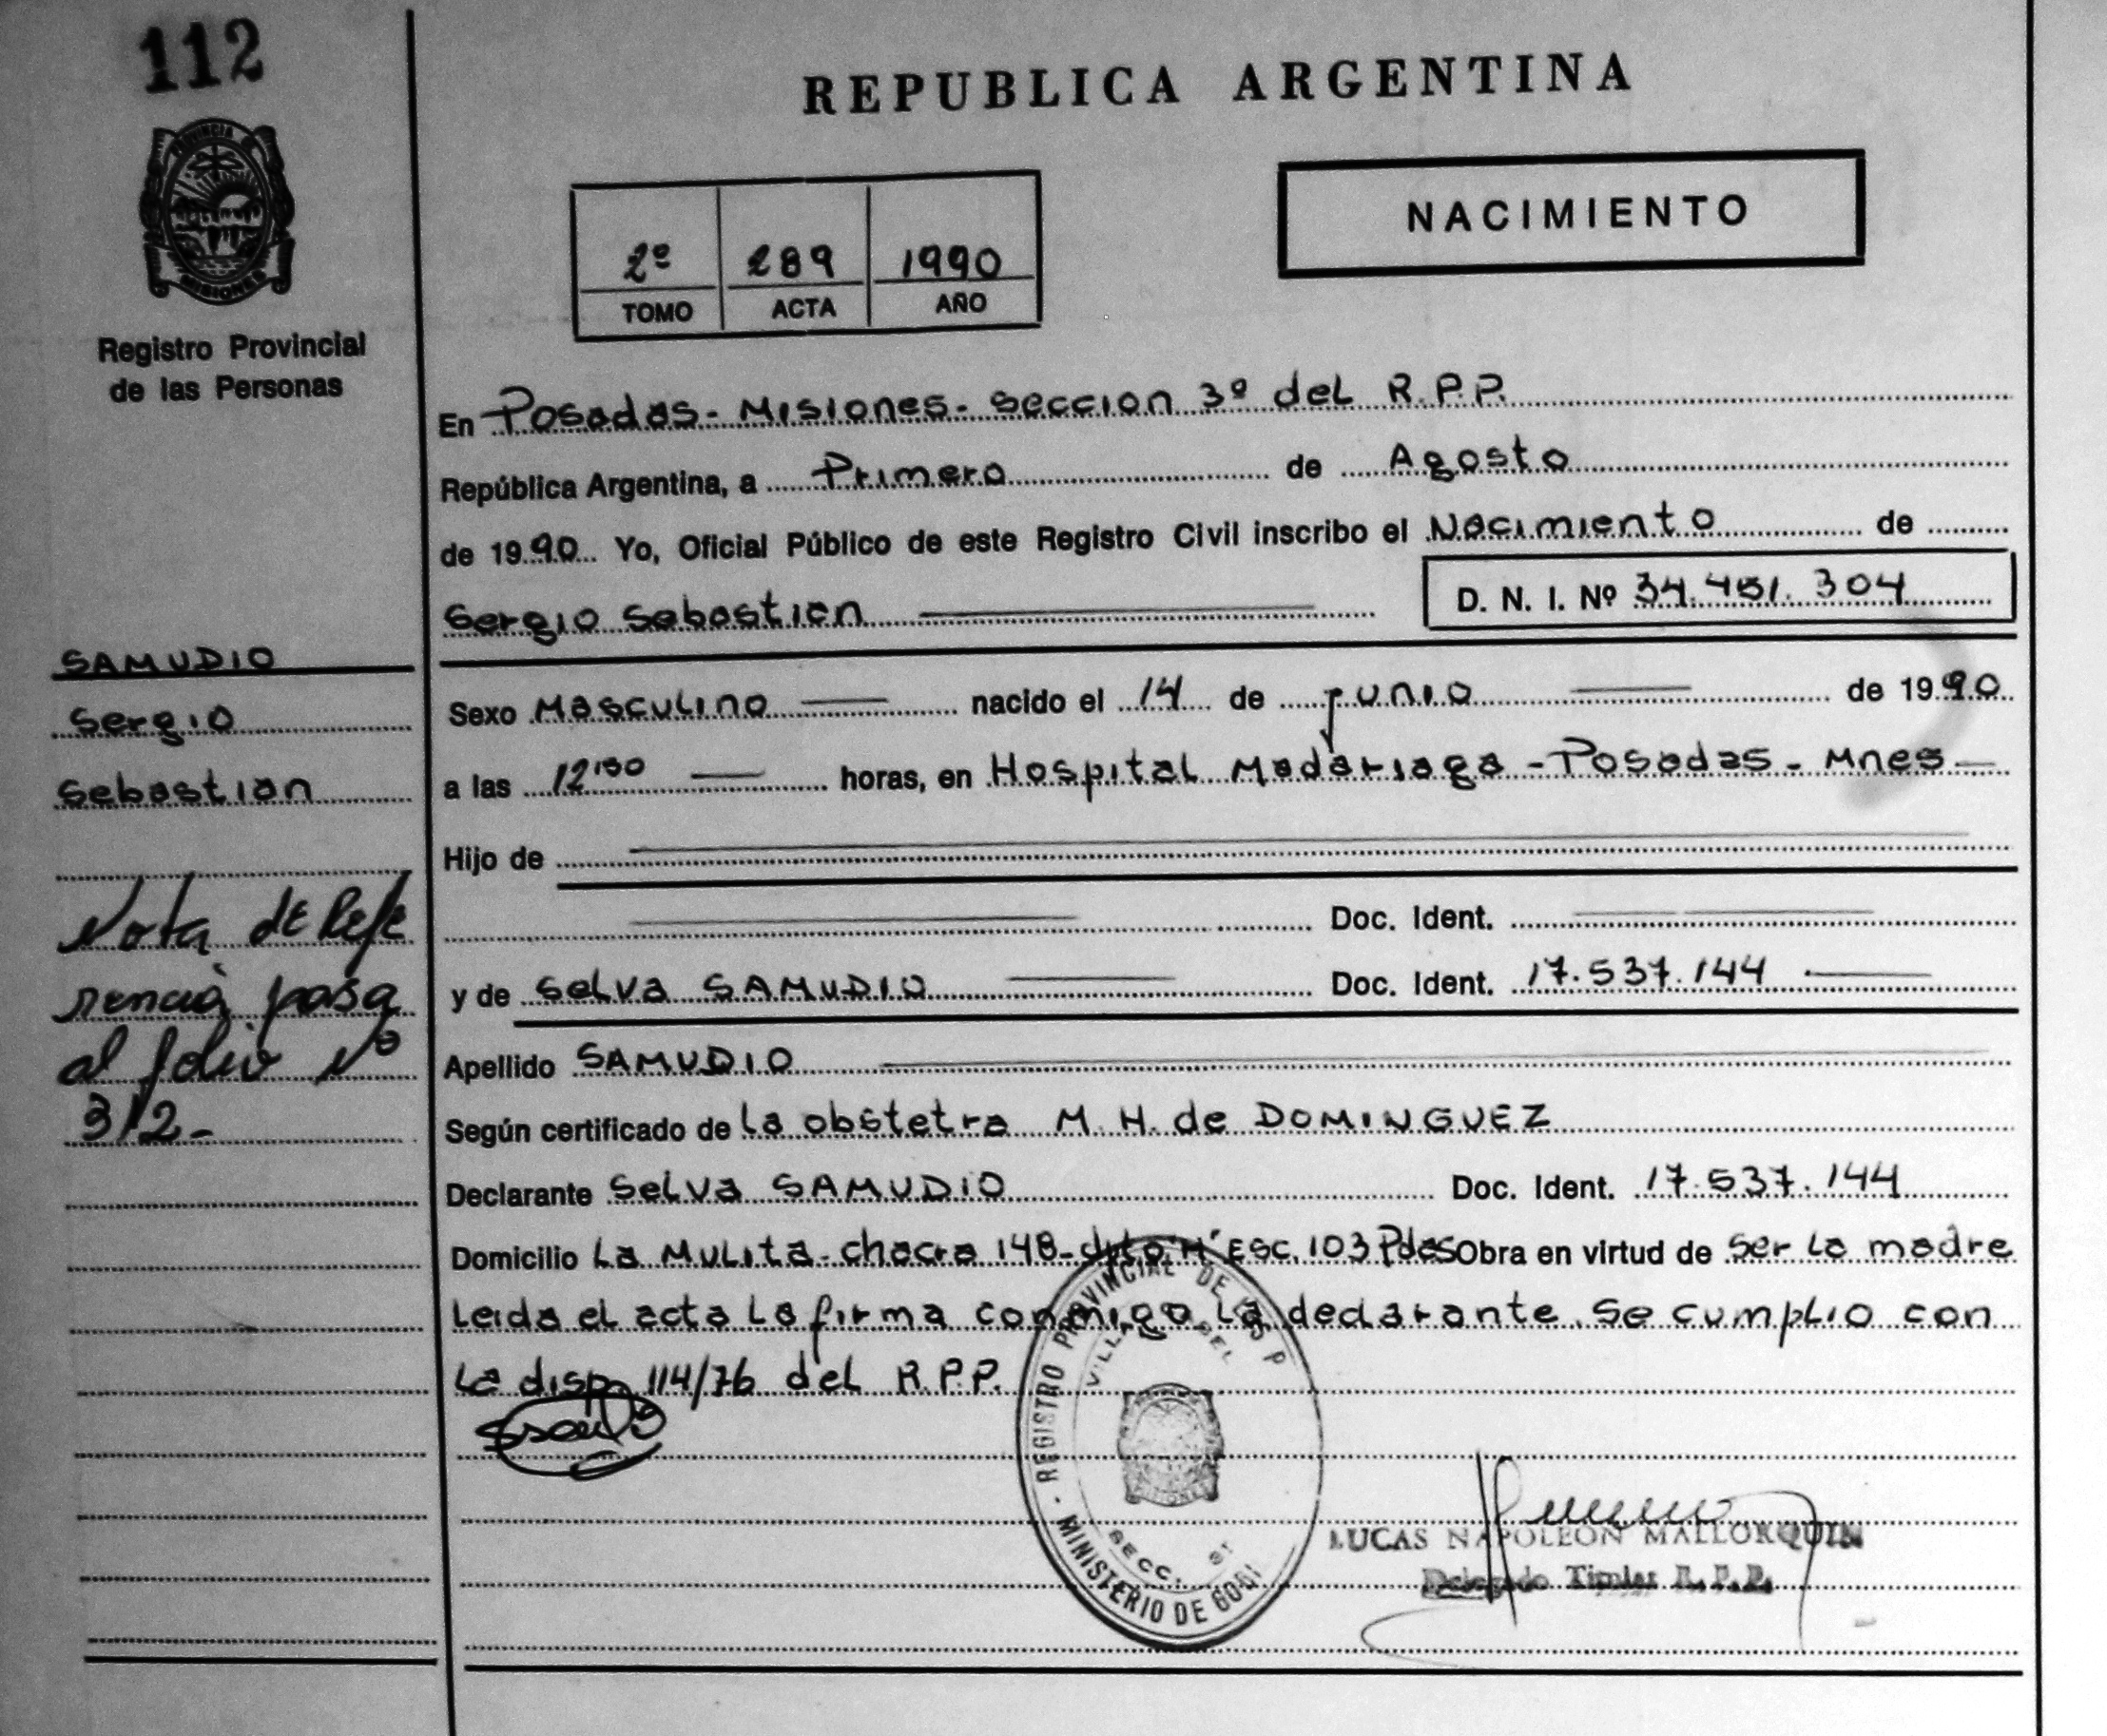 112
PROVINCIA DE
MISIONES
Registro Provincial
de las Personas
SAMUDIO
Sergio
Sebastian
Nota de Refe
rencia pasa
al folio Nº
312-
REPUBLICA ARGENTINA
2º 289 1990
TOMO ACTA AÑO
NACIMIENTO
En Posadas - Misiones - Seccion 3º del R.P.P.
República Argentina, a Primero de Agosto
de 1990 Yo, Oficial Público de este Registro Civil inscribo el Nacimiento de
Sergio Sebastian D. N. I. Nº 34.451.304
Sexo Masculino nacido el 14 de junio de 1990
a las 12 horas, en Hospital Madariaga - Posadas - Mnes -
Hijo de
Doc. Ident.
y de Selva SAMUDIO Doc. Ident. 17.537.144
Apellido SAMUDIO
Según certificado de la obstetra M. H. de DOMINGUEZ
Declarante Selva SAMUDIO Doc. Ident. 17.537.144
Domicilio La Mulita - chacra 148 - dpto "H" Esc. 103 Pdas Obra en virtud de Ser la madre
Leida el acta la firma conmigo la declarante. Se cumplio con
la disp. 114/76 del R.P.P.
REGISTRO PROVINCIAL DE LAS P
VILLA
SECC.
MINISTERIO DE GOB
MISIONES
LUCAS NAPOLEON MALLORQUIN
Delegado Titular R.P.P.